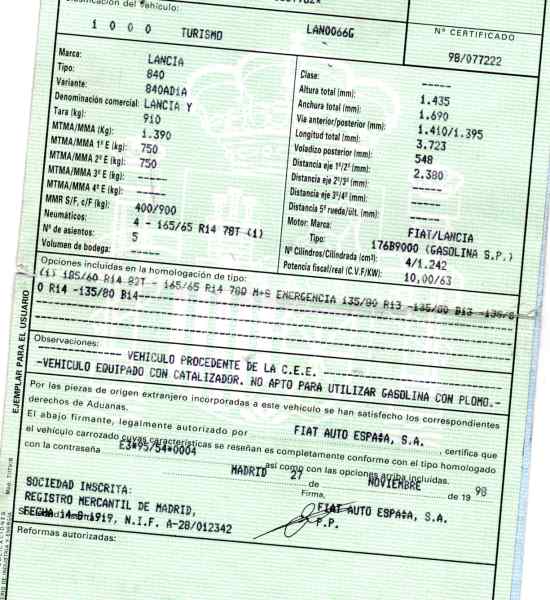 Clasificación del vehículo:
1 0 0 0 TURISMO LAN0066G
Nº CERTIFICADO
98/077222
Marca: LANCIA
Tipo: 840
Variante: 840AD1A
Denominación comercial: LANCIA Y
Tara (kg): 910
MTMA/MMA (Kg): 1.390
MTMA/MMA 1º E (kg): 750
MTMA/MMA 2º E (kg): 750
MTMA/MMA 3º E (kg): -----
MTMA/MMA 4º E (kg): -----
MMR S/F, c/F (kg): 400/900
Neumáticos: 4 - 165/65 R14 78T (1)
Nº de asientos: 5
Volumen de bodega: -----
Clase: -----
Altura total (mm): 1.435
Anchura total (mm): 1.690
Vía anterior/posterior (mm): 1.410/1.395
Longitud total (mm): 3.723
Voladizo posterior (mm): 548
Distancia eje 1º/2º (mm): 2.380
Distancia eje 2º/3º (mm): -----
Distancia eje 3º/4º (mm): -----
Distancia 5ª rueda/últ. (mm): -----
Motor: Marca: FIAT/LANCIA
Tipo: 176B9000 (GASOLINA S.P.)
Nº Cilindros/Cilindrada (cm³): 4/1.242
Potencia fiscal/real (C.V.F/KW): 10,00/63
Opciones incluidas en la homologación de tipo:
(1) 185/60 R14 82T - 165/65 R14 78Q M+S EMERGENCIA 135/80 R13 -135/80 B13 -135/8
0 R14 -135/80 B14
Observaciones:
VEHICULO PROCEDENTE DE LA C.E.E.
-VEHICULO EQUIPADO CON CATALIZADOR. NO APTO PARA UTILIZAR GASOLINA CON PLOMO.-
Por las piezas de origen extranjero incorporadas a este vehículo se han satisfecho los correspondientes
derechos de Aduanas.
El abajo firmante, legalmente autorizado por FIAT AUTO ESPA‡A, S.A. , certifica que
el vehículo carrozado cuyas características se reseñan es completamente conforme con el tipo homologado
con la contraseña E3*95/54*0004 así como con las opciones arriba incluidas.
MADRID 27 de NOVIEMBRE de 19 98
Firma,
SOCIEDAD INSCRITA:
REGISTRO MERCANTIL DE MADRID,
FECHA 14-8-1919, N.I.F. A-28/012342
FIAT AUTO ESPA‡A, S.A.
P.P.
Reformas autorizadas:
EJEMPLAR PARA EL USUARIO